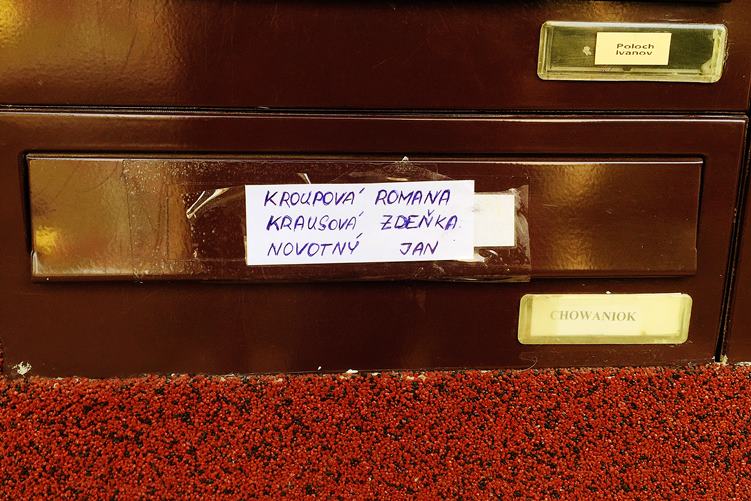 Poloch
Ivanov
KROUPOVÁ ROMANA
KRAUSOVÁ ZDEŇKA
NOVOTNÝ JAN
CHOWANIOK